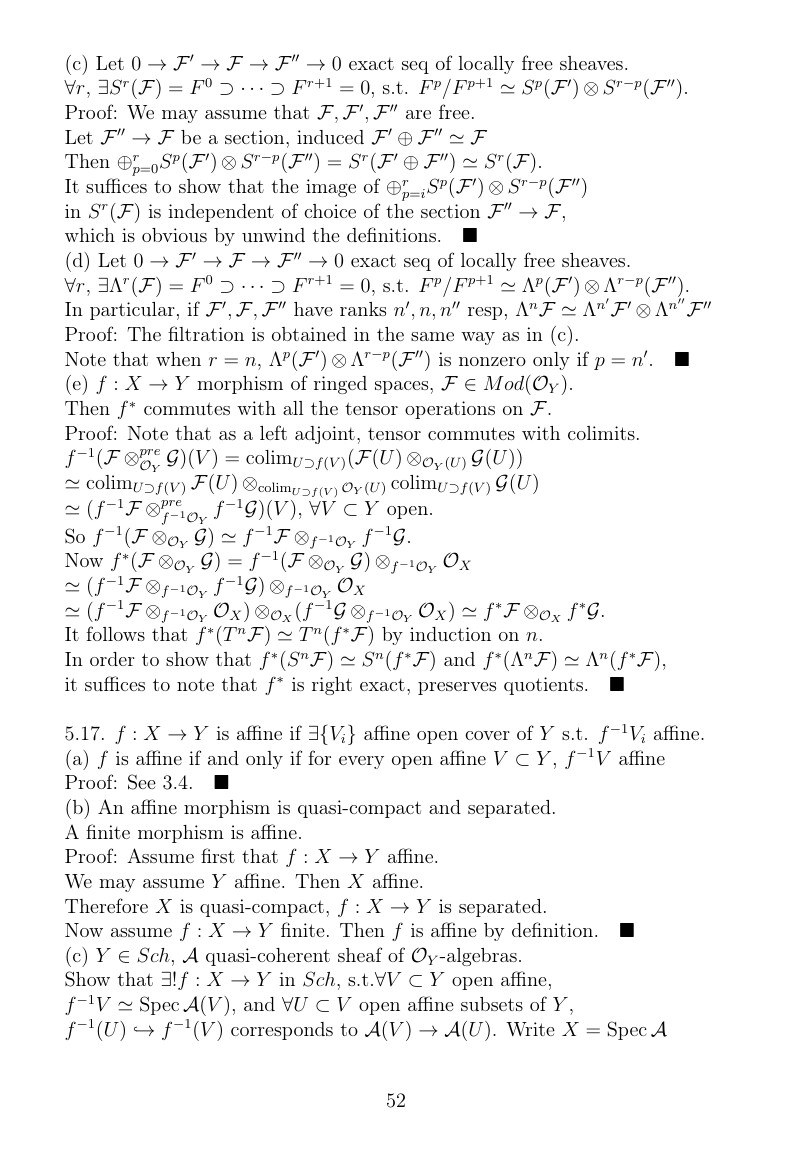 (c) Let 0 → ℱ′ → ℱ → ℱ″ → 0 exact seq of locally free sheaves.
∀r, ∃S^r(ℱ) = F^0 ⊃ ··· ⊃ F^{r+1} = 0, s.t. F^p/F^{p+1} ≃ S^p(ℱ′) ⊗ S^{r−p}(ℱ″).
Proof: We may assume that ℱ, ℱ′, ℱ″ are free.
Let ℱ″ → ℱ be a section, induced ℱ′ ⊕ ℱ″ ≃ ℱ
Then ⊕^r_{p=0}S^p(ℱ′) ⊗ S^{r−p}(ℱ″) = S^r(ℱ′ ⊕ ℱ″) ≃ S^r(ℱ).
It suffices to show that the image of ⊕^r_{p=i}S^p(ℱ′) ⊗ S^{r−p}(ℱ″)
in S^r(ℱ) is independent of choice of the section ℱ″ → ℱ,
which is obvious by unwind the definitions. ■
(d) Let 0 → ℱ′ → ℱ → ℱ″ → 0 exact seq of locally free sheaves.
∀r, ∃Λ^r(ℱ) = F^0 ⊃ ··· ⊃ F^{r+1} = 0, s.t. F^p/F^{p+1} ≃ Λ^p(ℱ′) ⊗ Λ^{r−p}(ℱ″).
In particular, if ℱ′, ℱ, ℱ″ have ranks n′, n, n″ resp, Λ^nℱ ≃ Λ^{n′}ℱ′ ⊗ Λ^{n″}ℱ″
Proof: The filtration is obtained in the same way as in (c).
Note that when r = n, Λ^p(ℱ′) ⊗ Λ^{r−p}(ℱ″) is nonzero only if p = n′. ■
(e) f : X → Y morphism of ringed spaces, ℱ ∈ Mod(𝒪_Y).
Then f^* commutes with all the tensor operations on ℱ.
Proof: Note that as a left adjoint, tensor commutes with colimits.
f^{−1}(ℱ ⊗^{pre}_{𝒪_Y} 𝒢)(V) = colim_{U⊃f(V)}(ℱ(U) ⊗_{𝒪_Y(U)} 𝒢(U))
≃ colim_{U⊃f(V)} ℱ(U) ⊗_{colim_{U⊃f(V)} 𝒪_Y(U)} colim_{U⊃f(V)} 𝒢(U)
≃ (f^{−1}ℱ ⊗^{pre}_{f^{−1}𝒪_Y} f^{−1}𝒢)(V), ∀V ⊂ Y open.
So f^{−1}(ℱ ⊗_{𝒪_Y} 𝒢) ≃ f^{−1}ℱ ⊗_{f^{−1}𝒪_Y} f^{−1}𝒢.
Now f^*(ℱ ⊗_{𝒪_Y} 𝒢) = f^{−1}(ℱ ⊗_{𝒪_Y} 𝒢) ⊗_{f^{−1}𝒪_Y} 𝒪_X
≃ (f^{−1}ℱ ⊗_{f^{−1}𝒪_Y} f^{−1}𝒢) ⊗_{f^{−1}𝒪_Y} 𝒪_X
≃ (f^{−1}ℱ ⊗_{f^{−1}𝒪_Y} 𝒪_X) ⊗_{𝒪_X} (f^{−1}𝒢 ⊗_{f^{−1}𝒪_Y} 𝒪_X) ≃ f^*ℱ ⊗_{𝒪_X} f^*𝒢.
It follows that f^*(T^nℱ) ≃ T^n(f^*ℱ) by induction on n.
In order to show that f^*(S^nℱ) ≃ S^n(f^*ℱ) and f^*(Λ^nℱ) ≃ Λ^n(f^*ℱ),
it suffices to note that f^* is right exact, preserves quotients. ■
5.17. f : X → Y is affine if ∃{V_i} affine open cover of Y s.t. f^{−1}V_i affine.
(a) f is affine if and only if for every open affine V ⊂ Y, f^{−1}V affine
Proof: See 3.4. ■
(b) An affine morphism is quasi-compact and separated.
A finite morphism is affine.
Proof: Assume first that f : X → Y affine.
We may assume Y affine. Then X affine.
Therefore X is quasi-compact, f : X → Y is separated.
Now assume f : X → Y finite. Then f is affine by definition. ■
(c) Y ∈ Sch, 𝒜 quasi-coherent sheaf of 𝒪_Y-algebras.
Show that ∃!f : X → Y in Sch, s.t.∀V ⊂ Y open affine,
f^{−1}V ≃ Spec 𝒜(V), and ∀U ⊂ V open affine subsets of Y,
f^{−1}(U) ↪ f^{−1}(V) corresponds to 𝒜(V) → 𝒜(U). Write X = Spec 𝒜
52